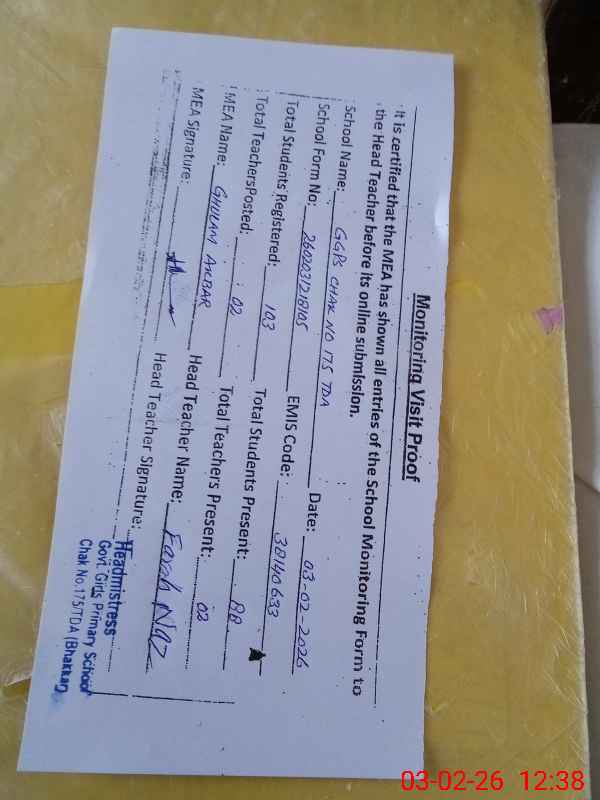 Monitoring Visit Proof
It is certified that the MEA has shown all entries of the School Monitoring Form to
the Head Teacher before its online submission.
School Name: GGPS CHAK NO 175 TDA Date: 03-02-2026
School Form No: 2602031218105 EMIS Code: 38140633
Total Students Registered: 103 Total Students Present: 88
Total TeachersPosted: 02 Total Teachers Present: 02
MEA Name: GHULAM AKBAR Head Teacher Name: Farah Naz
MEA Signature: Head Teacher Signature:
Headmistress
Govt. Girls Primary School
Chak No.175/TDA (Bhakkar)
03-02-26 12:38